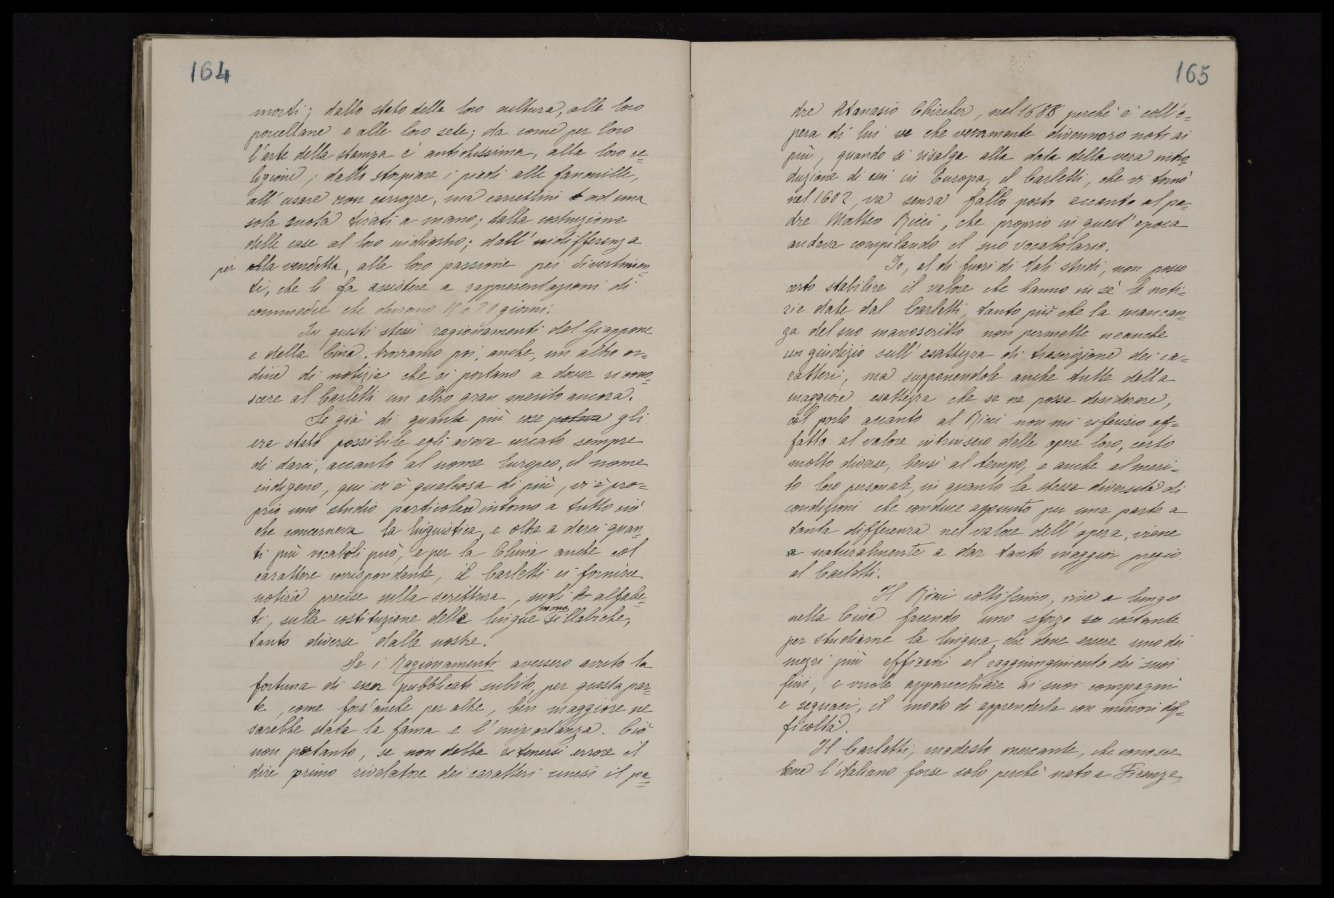 164
morti; dallo stato della loro cultura, alle loro
porcellane e alle loro sete; da come per loro
l'arte della stampa è antichissima, alla loro re=
ligione; dallo storpiare i piedi alle fanciulle,
all'usare non carrozze, ma carrettini ad una
sola ruota tirati a mano; dalla costruzione
delle case al loro inchiostro; dall'indifferenza
per alla vendetta, alla loro passione pei divertimen=
ti, che li fa assistere a rappresentazioni di
commedie che durano giorni.
In questi stessi ragionamenti del Giappone
e della Cina, troviamo poi, anche, un altro or=
dine di notizie che ci portano a dover ricono=
scere al Carletti un altro gran merito ancora.
Se già di quante più cose poteva gli
era stato possibile egli aveva cercato sempre
di darci, accanto al nome Europeo, il nome
indigeno, qui vi è qualcosa di più, vi è pro=
prio uno studio particolare intorno a tutto ciò
che concerneva la linguistica, e oltre a darci quan=
ti più vocaboli può, e per la China anche col
carattere corrispondente, il Carletti ci fornisce
notizie precise sulla scrittura, sugli alfabe=
ti, sulla costituzione delle lingue monosillabiche,
tanto diverse dalle nostre.
Se i Ragionamenti avessero avuto la
fortuna di esser pubblicati subito, per questa par=
te, come fors'anche per altre, ben maggiore ne
sarebbe stata la fama e l'importanza. Ciò
non pertanto, se non debba ritenersi errore il
dire primo rivelatore dei caratteri cinesi il pa=
165
dre Atanasio Chircher, nel 1688 perchè è coll'o=
pera di lui che veramente divennero noti ai
più, quando si risalga alla data della vera intro=
duzione di essi in Europa, il Carletti, che vi tornò
nel 1602, va senza fallo posto accanto al pa=
dre Matteo Ricci, che proprio in quest'epoca
andava compilando il suo vocabolario.
Io, al di fuori di tali studi, non posso
certo stabilire il valore che hanno in sè le noti=
zie date dal Carletti, tanto più che la mancan=
za del suo manoscritto non permette neanche
un giudizio sull'esattezza di trascrizione dei ca=
ratteri, ma supponendole anche tutte della
maggiore esattezza che se ne possa desiderare,
col porlo accanto al Ricci non mi riferisco af=
fatto al valore intrinseco delle opere loro, certo
molto diverse, bensì al tempo, e anche al meri=
to loro personale, in quanto la stessa diversità di
condizioni che conduce appunto per una parte a
tanta differenza nel valore dell'opera, viene
naturalmente a dar tanto maggior pregio
al Carletti.
Il Ricci coltissimo, vive a lungo
nella Cina facendo uno sforzo costante
per studiarne la lingua, che deve essere uno dei
mezzi più efficaci al raggiungimento dei suoi
fini, e vuole apparecchiare ai suoi compagni
e seguaci, il modo di apprenderla con minori dif=
ficoltà.
Il Carletti, modesto mercante, che conosce
bene l'italiano forse solo perchè nato a Firenze,